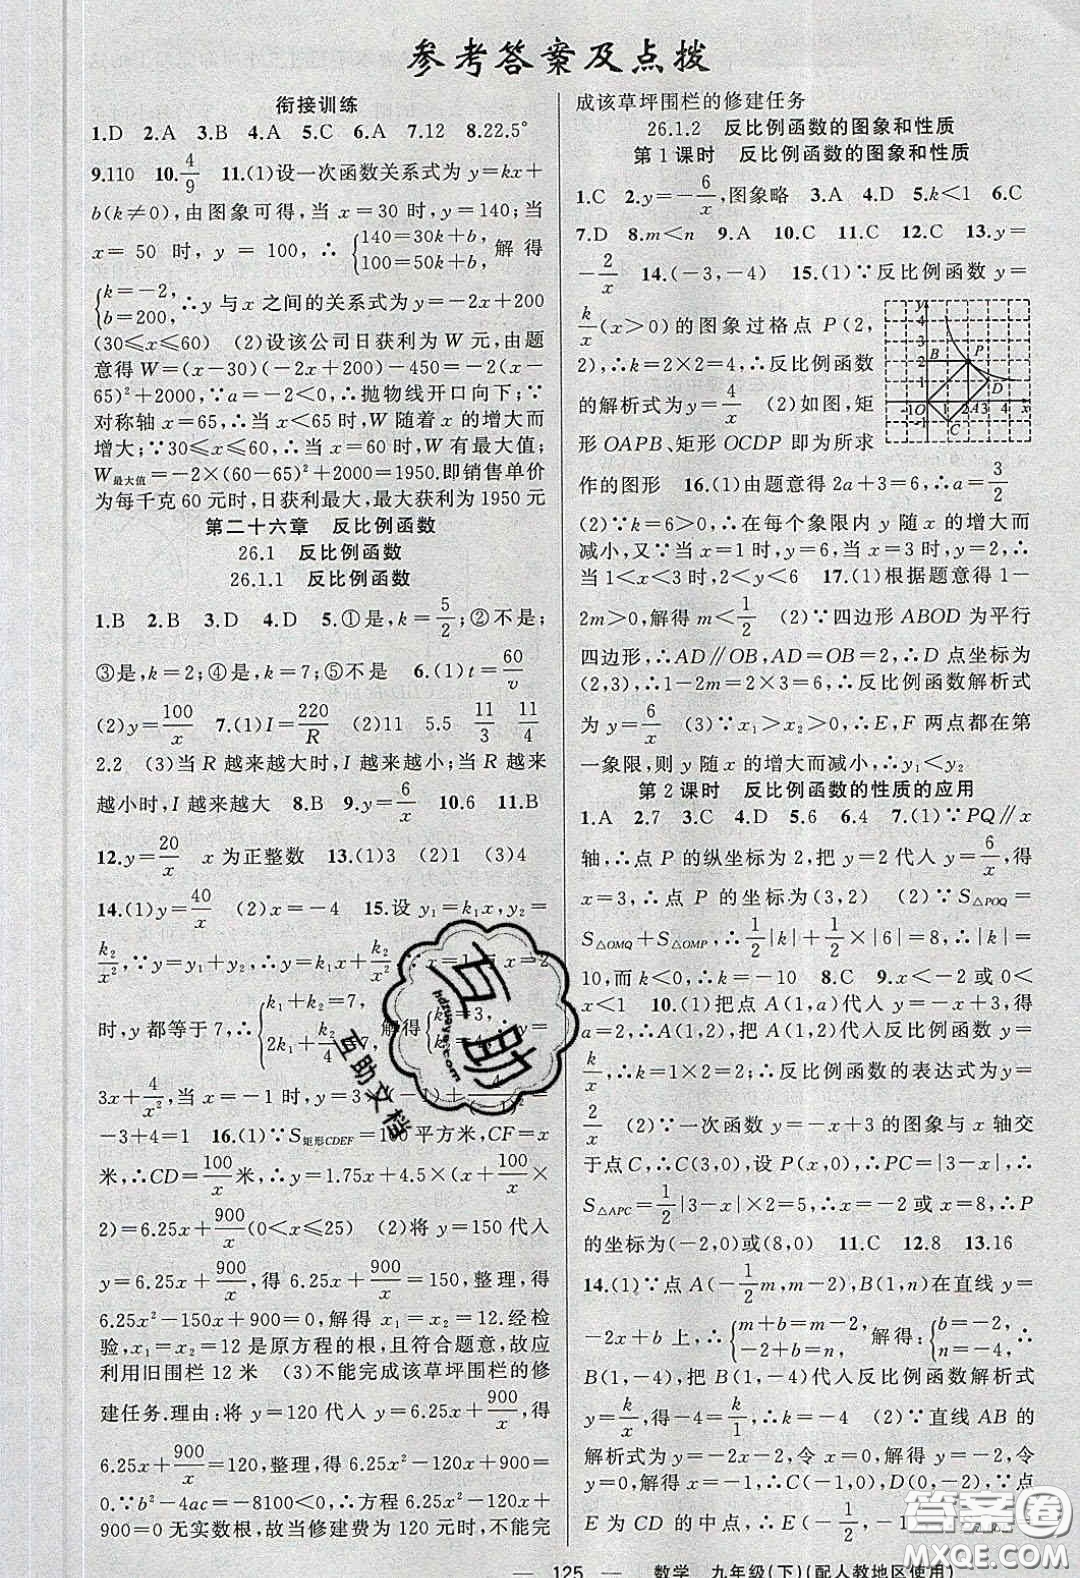 参考答案及点拨
衔接训练
1.D 2.A 3.B 4.A 5.C 6.A 7.12 8.22.5°
9.110 10.4/9 11.(1)设一次函数关系式为 y=kx+
b(k≠0),由图象可得,当 x=30 时,y=140;当
x=50 时,y=100,∴{140=30k+b,100=50k+b,解得
{k=-2,b=200,∴y 与 x 之间的关系式为 y=-2x+200
(30≤x≤60) (2)设该公司日获利为 W 元,由题
意得 W=(x-30)(-2x+200)-450=-2(x-
65)²+2000,∵a=-2<0,∴抛物线开口向下;∵
对称轴 x=65,∴当 x<65 时,W 随着 x 的增大而
增大;∵30≤x≤60,∴当 x=60 时,W 有最大值;
W最大值=-2×(60-65)²+2000=1950.即销售单价
为每千克 60 元时,日获利最大,最大获利为 1950 元
第二十六章 反比例函数
26.1 反比例函数
26.1.1 反比例函数
1.B 2.B 3.D 4.D 5.①是,k=5/2;②不是;
③是,k=2;④是,k=7;⑤不是 6.(1)t=60/v
(2)y=100/x 7.(1)I=220/R (2)11 5.5 11/3 11/4
2.2 (3)当 R 越来越大时,I 越来越小;当 R 越来
越小时,I 越来越大 8.B 9.y=6/x 10.6 11.B
12.y=20/x x 为正整数 13.(1)3 (2)1 (3)4
14.(1)y=40/x (2)x=-4 15.设 y₁=k₁x,y₂=
k₂/x²,∵y=y₁+y₂,∴y=k₁x+
时,y 都等于 7,∴{k₁+k₂=7,2k₁+k₂/4=7,解得
3x+4/x²,∴当 x=-1 时,y=3
-3+4=1 16.(1)∵S矩形CDEF=100 平方米,CF=x
米,∴CD=100/x 米,∴y=1.75x+4.5×(x+100/x×
2)=6.25x+900/x(0<x≤25) (2)将 y=150 代入
y=6.25x+900/x,得 6.25x+900/x=150,整理,得
6.25x²-150x+900=0,解得 x₁=x₂=12.经检
验,x₁=x₂=12 是原方程的根,且符合题意,故应
利用旧围栏 12 米 (3)不能完成该草坪围栏的修
建任务.理由:将 y=120 代入 y=6.25x+900/x,得
6.25x+900/x=120,整理,得 6.25x²-120x+900=
0.∵b²-4ac=-8100<0,∴方程 6.25x²-120x+
900=0 无实数根,故当修建费为 120 元时,不能完
成该草坪围栏的修建任务
26.1.2 反比例函数的图象和性质
第 1 课时 反比例函数的图象和性质
1.C 2.y=-6/x,图象略 3.A 4.D 5.k<1 6.C
7.D 8.m<n 9.A 10.C 11.C 12.C 13.y=
-2/x 14.(-3,-4) 15.(1)∵反比例函数 y=
k/x(x>0)的图象过格点 P(2,
2),∴k=2×2=4,∴反比例函数
的解析式为 y=4/x (2)如图,矩
形 OAPB,矩形 OCDP 即为所求
作的图形 16.(1)由题意得 2a+3=6,∴a=3/2
(2)∵k=6>0,∴在每个象限内 y 随 x 的增大而
减小,又∵当 x=1 时,y=6;当 x=3 时,y=2,∴
当 1<x<3 时,2<y<6 17.(1)根据题意得 1-
2m>0,解得 m<1/2 (2)∵四边形 ABOD 为平行
四边形,∴AD∥OB,AD=OB=2,∴D 点坐标为
(2,3),∴1-2m=2×3=6,∴反比例函数解析式
为 y=6/x (3)∵x₁>x₂>0,∴E,F 两点都在第
一象限,则 y 随 x 的增大而减小,∴y₁<y₂
第 2 课时 反比例函数的性质的应用
1.A 2.7 3.C 4.D 5.6 6.4 7.(1)∵PQ∥x
轴,∴点 P 的纵坐标为 2,把 y=2 代入 y=6/x,得
x=3,∴点 P 的坐标为(3,2) (2)∵S△POQ=
S△OMQ+S△OMP,∴1/2|k|+1/2×|6|=8,∴|k|=
10,而 k<0,∴k=-10 8.C 9.x<-2 或 0<
x<1 10.(1)把点 A(1,a)代入 y=-x+3,得
a=2,∴A(1,2),把 A(1,2)代入反比例函数 y=
k/x,∴k=1×2=2;∴反比例函数的表达式为 y=
2/x (2)∵一次函数 y=-x+3 的图象与 x 轴交
于点 C,∴C(3,0),设 P(x,0),∴PC=|3-x|,∴
S△APC=1/2|3-x|×2=5,∴x=-2 或 x=8,∴P
的坐标为(-2,0)或(8,0) 11.C 12.8 13.16
14.(1)∵点 A(-1/2m,m-2),B(1,n)在直线 y=
-2x+b 上,∴{m+b=m-2,-2+b=n,解得:{b=-2,n=-4,
∴B(1,-4),把 B(1,-4)代入反比例函数解析式
y=k/x,得-4=k/1,∴k=-4 (2)∵直线 AB 的
解析式为 y=-2x-2,令 x=0,解得 y=-2,令
y=0,解得 x=-1,∴C(-1,0),D(0,-2),∵点
E 为 CD 的中点,∴E(-1/2,-1
B
P
D
O
A
C
x
1 2 3 4
4 3 2 1 -1
互助
hdzuoye.com
互助文档
答案圈
MXQE.COM
— 125 — 数学 九年级(下)(配人教地区使用)